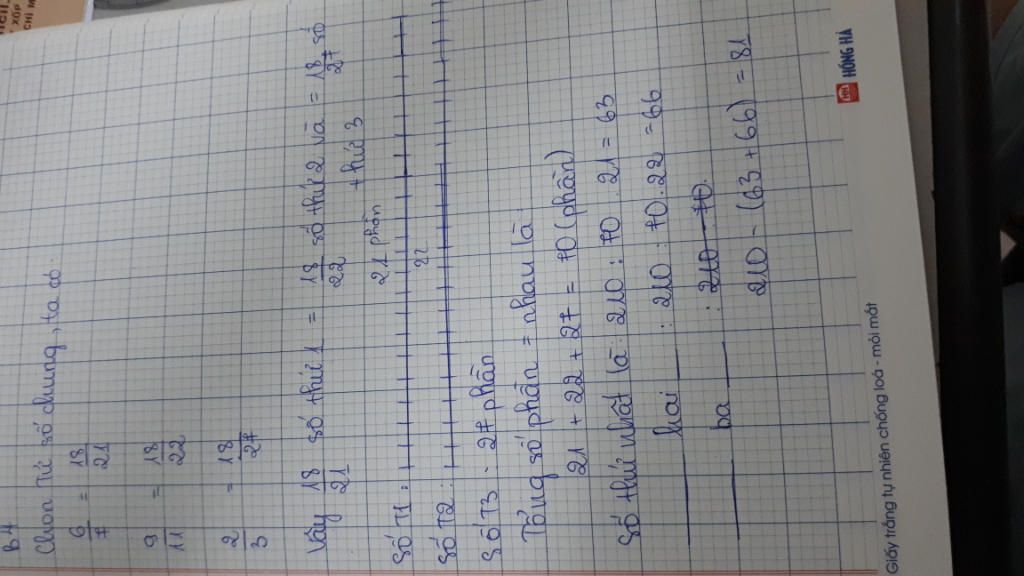 B4
Chọn tử số chung, ta có:
6/7 = 18/21
9/11 = 18/22
2/3 = 18/27
Vậy 18/21 số thứ 1 = 18/22 số thứ 2 và = 18/27 số
thứ 3
21 phần
Số T1:
22
Số T2:
Số T3 - 27 phần
Tổng số phần = nhau là
21 + 22 + 27 = 70 (phần)
Số thứ nhất là: 210 : 70 . 21 = 63
hai : 210 : 70 . 22 = 66
ba : 210 - 70.
210 - (63 + 66) = 81
HỒNG HÀ
Giấy trắng tự nhiên chống loá - mỏi mắt